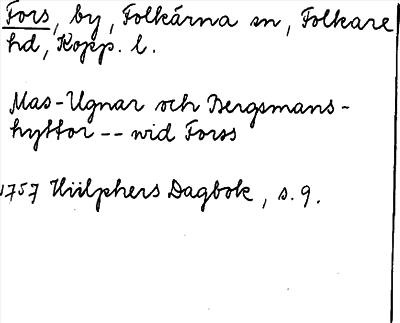 Fors, by, Folkärna sn, Folkare
hd, Kopp. l.
Mas-Ugnar och Bergsmans-
hyttor -- wid Forss
1757 Hülphers Dagbok, s. 9.